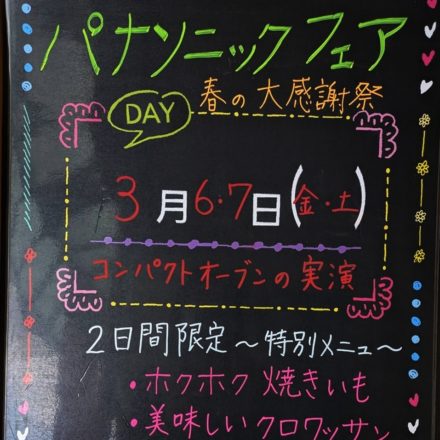 パナソニックフェア
DAY 春の大感謝祭
3月6・7日(金・土)
コンパクトオーブンの実演
2日間限定～特別メニュー～
・ホクホク焼きいも
・美味しいクロワッサン